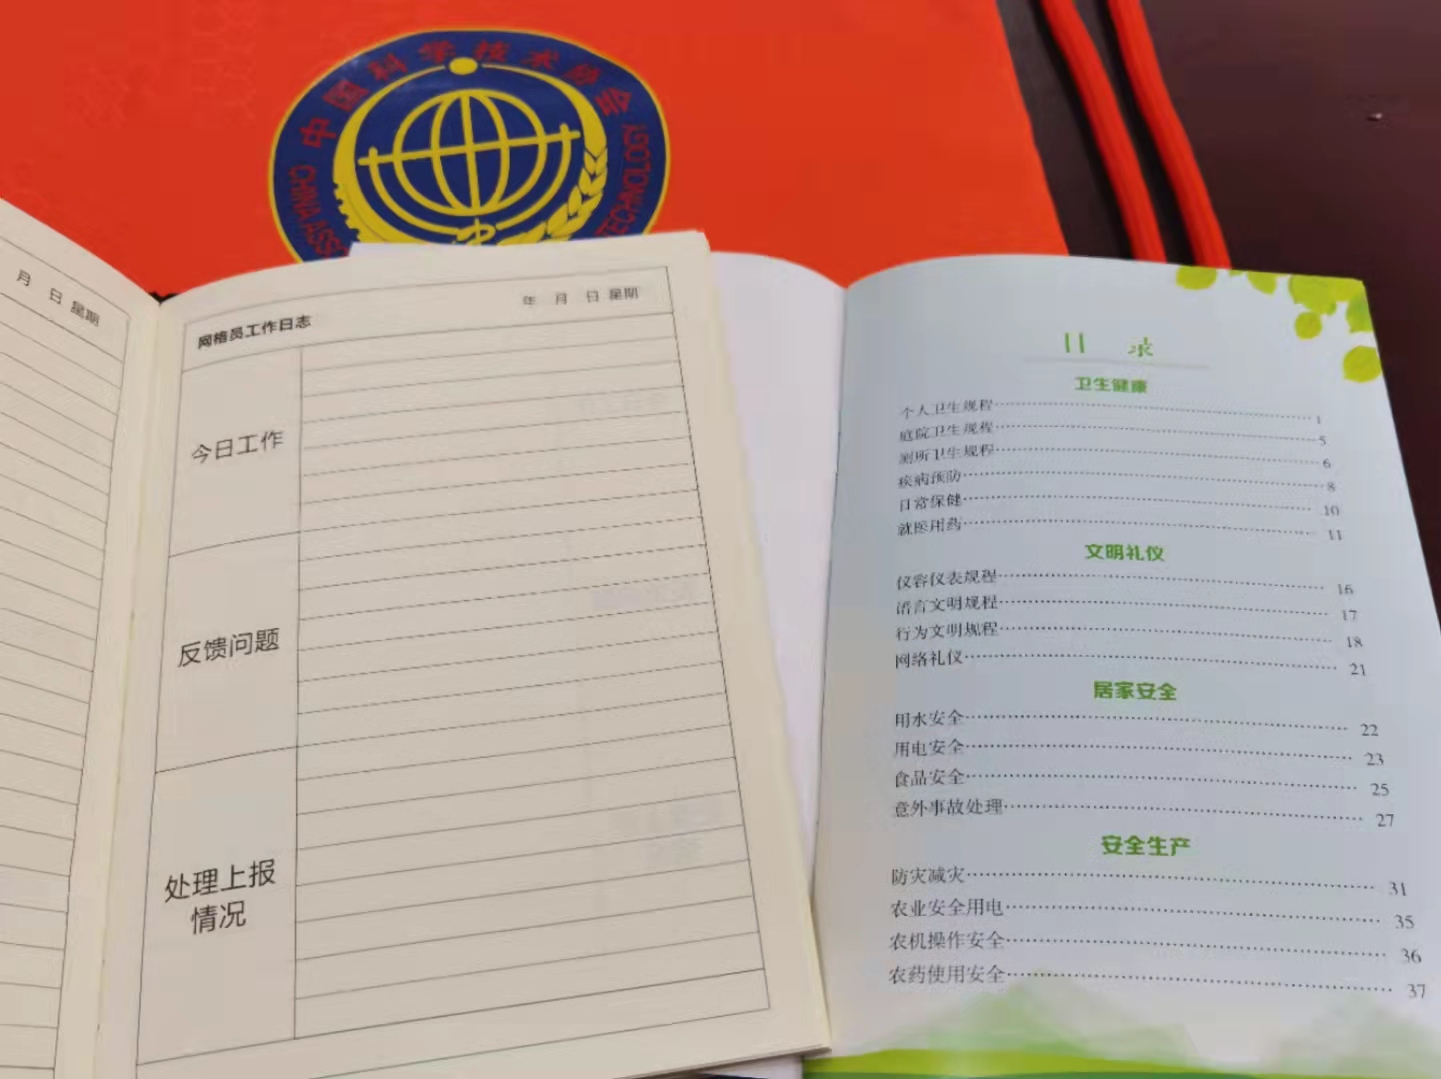 中国科学技术协会
CHINA ASS
TECHNOLOGY
月 日 星期
网格员工作日志 年 月 日 星期
今日工作
反馈问题
处理上报
情况
目 录
卫生健康
个人卫生规程 1
庭院卫生规程 5
厕所卫生规程 6
疾病预防 8
日常保健 10
就医用药 11
文明礼仪
仪容仪表规程 16
语言文明规程 17
行为文明规程 18
网络礼仪 21
居家安全
用水安全 22
用电安全 23
食品安全 25
意外事故处理 27
安全生产
防灾减灾 31
农业安全用电 35
农机操作安全 36
农药使用安全 37